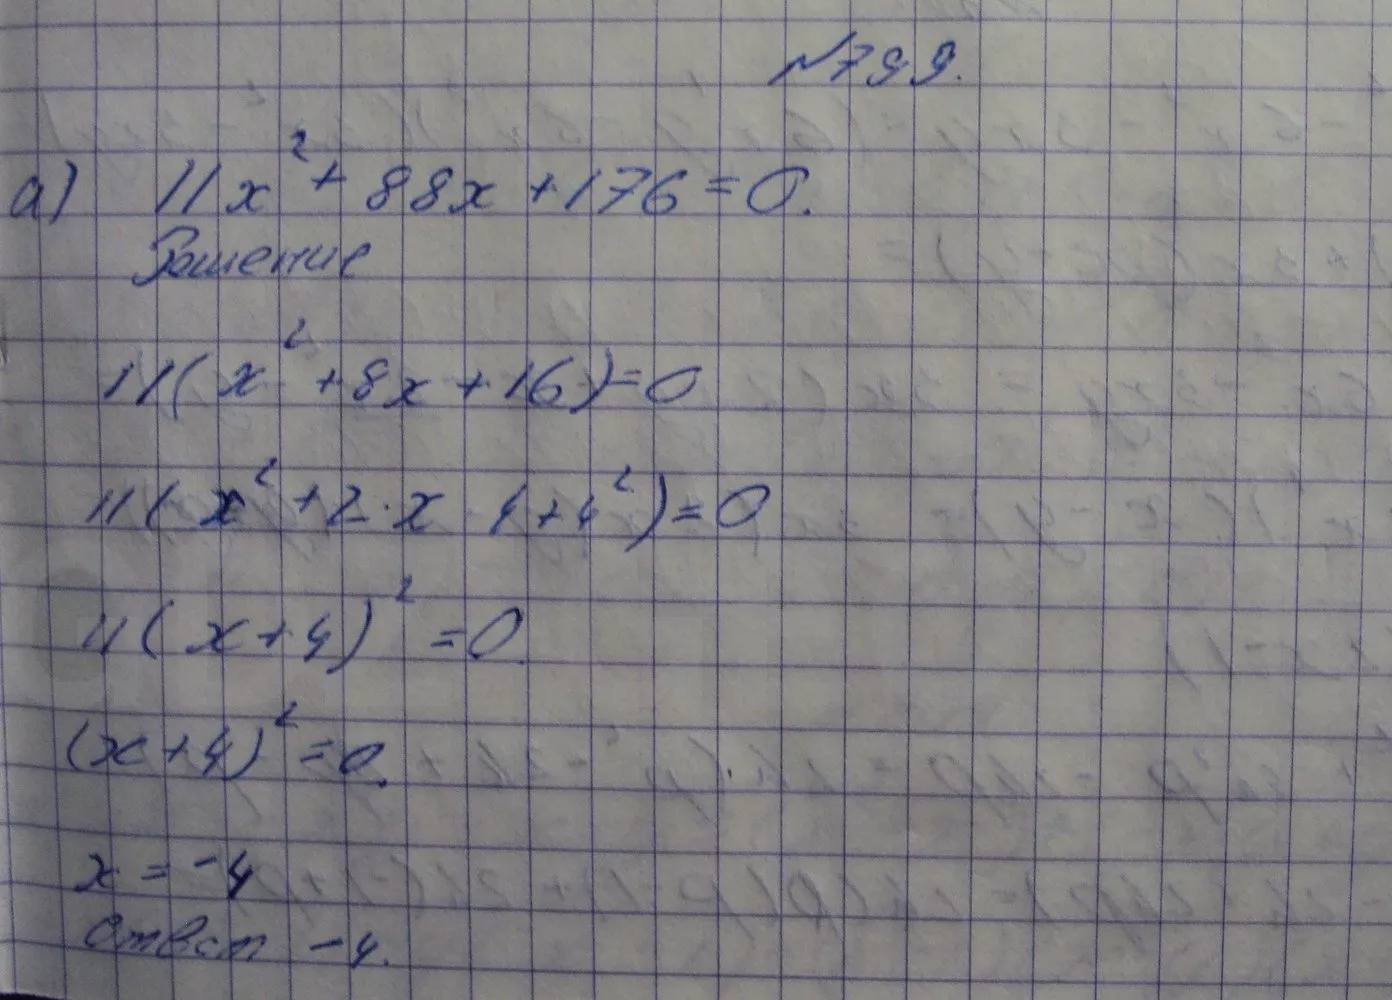 №799.
а) 11x² + 88x + 176 = 0.
Решение
11(x² + 8x + 16) = 0
11(x² + 2·x 4 + 4²) = 0
11(x + 4)² = 0
(x + 4)² = 0.
x = -4
Ответ -4.